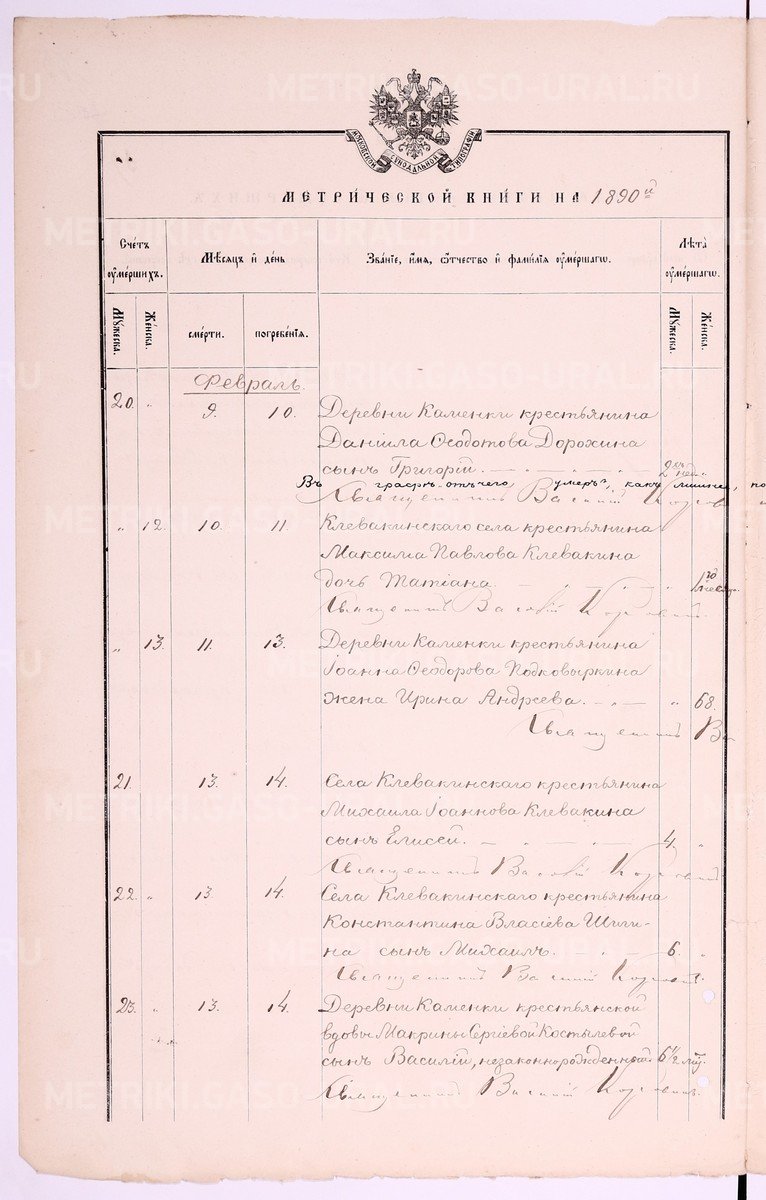 METRIKI.GASO-URAL.RU
МОСКОВСКОЙ СѴНОДАЛЬНОЙ ТИПОГРАФІИ
МЕТРИ́ЧЕСКОЙ КНИ́ГИ НА 1890й
Сче́тъ ᲂу҆ме́ршихъ.
Мѣ́сѧцъ и҆ де́нь
Зва́нїе, и҆́мѧ, ѻ҆́тчество и҆ фами́лїѧ ᲂу҆ме́ршагѡ.
Лѣ́та ᲂу҆ме́ршагѡ.
Мꙋ́жеска.
Же́нска.
сме́рти.
погребе́нїѧ.
Мꙋ́жеска.
Же́нска.
Февраль.
20. " 9. 10. Деревни Каменки крестьянина
Даніила Ѳеодотова Дорохина
сынъ Григорій. 2хъ нед. "
Въ графѣ отъ чего умеръ, какъ лишнее, по
Священникъ Василій
" 12. 10. 11. Клевакинскаго села крестьянина
Максима Павлова Клевакина
дочь Татіана. " 1го месяца
Священникъ Василій
" 13. 11. 13. Деревни Каменки крестьянина
Іоанна Ѳеодорова Подковыркина
жена Ирина Андреева. " 68.
Священникъ Ва
21. 13. 14. Села Клевакинскаго крестьянина
Михаила Іоаннова Клевакина
сынъ Елисей. 4. "
Священникъ Василій
22. " 13. 14. Села Клевакинскаго крестьянина
Константина Власіева Шиги-
на сынъ Михаилъ. 6. "
Священникъ Василій
23. " 13. 14. Деревни Каменки крестьянской
вдовы Макрины Сергіевой Костылевой
сынъ Василій, незаконнорожденный. 6½ мц.
Священникъ Василій